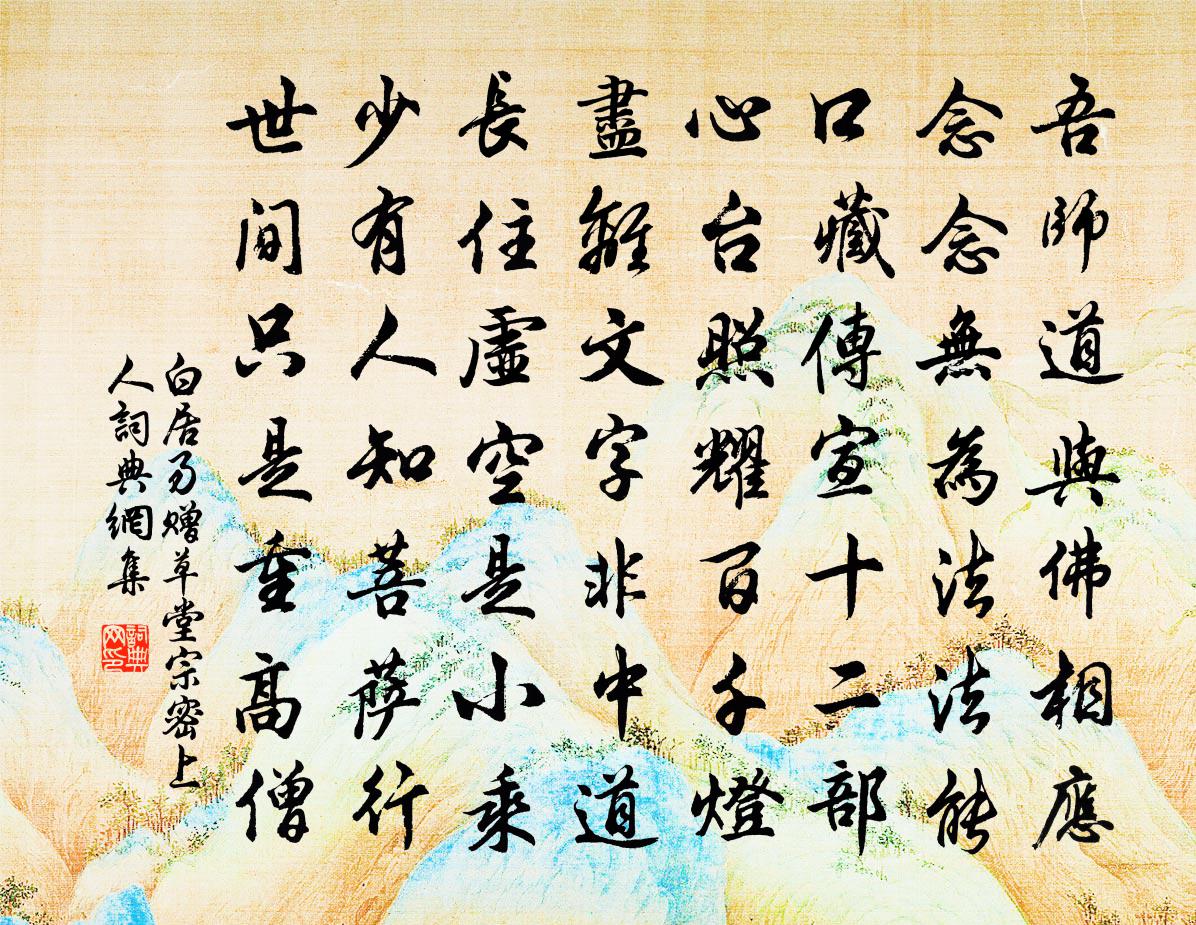 吾師道與佛相應
念念無為法法能
口藏傳宣十二部
心台照耀百千燈
盡離文字非中道
長住虛空是小乘
少有人知菩薩行
世間只是重高僧
白居易贈草堂宗密上
人詞典網集
詞典
网印